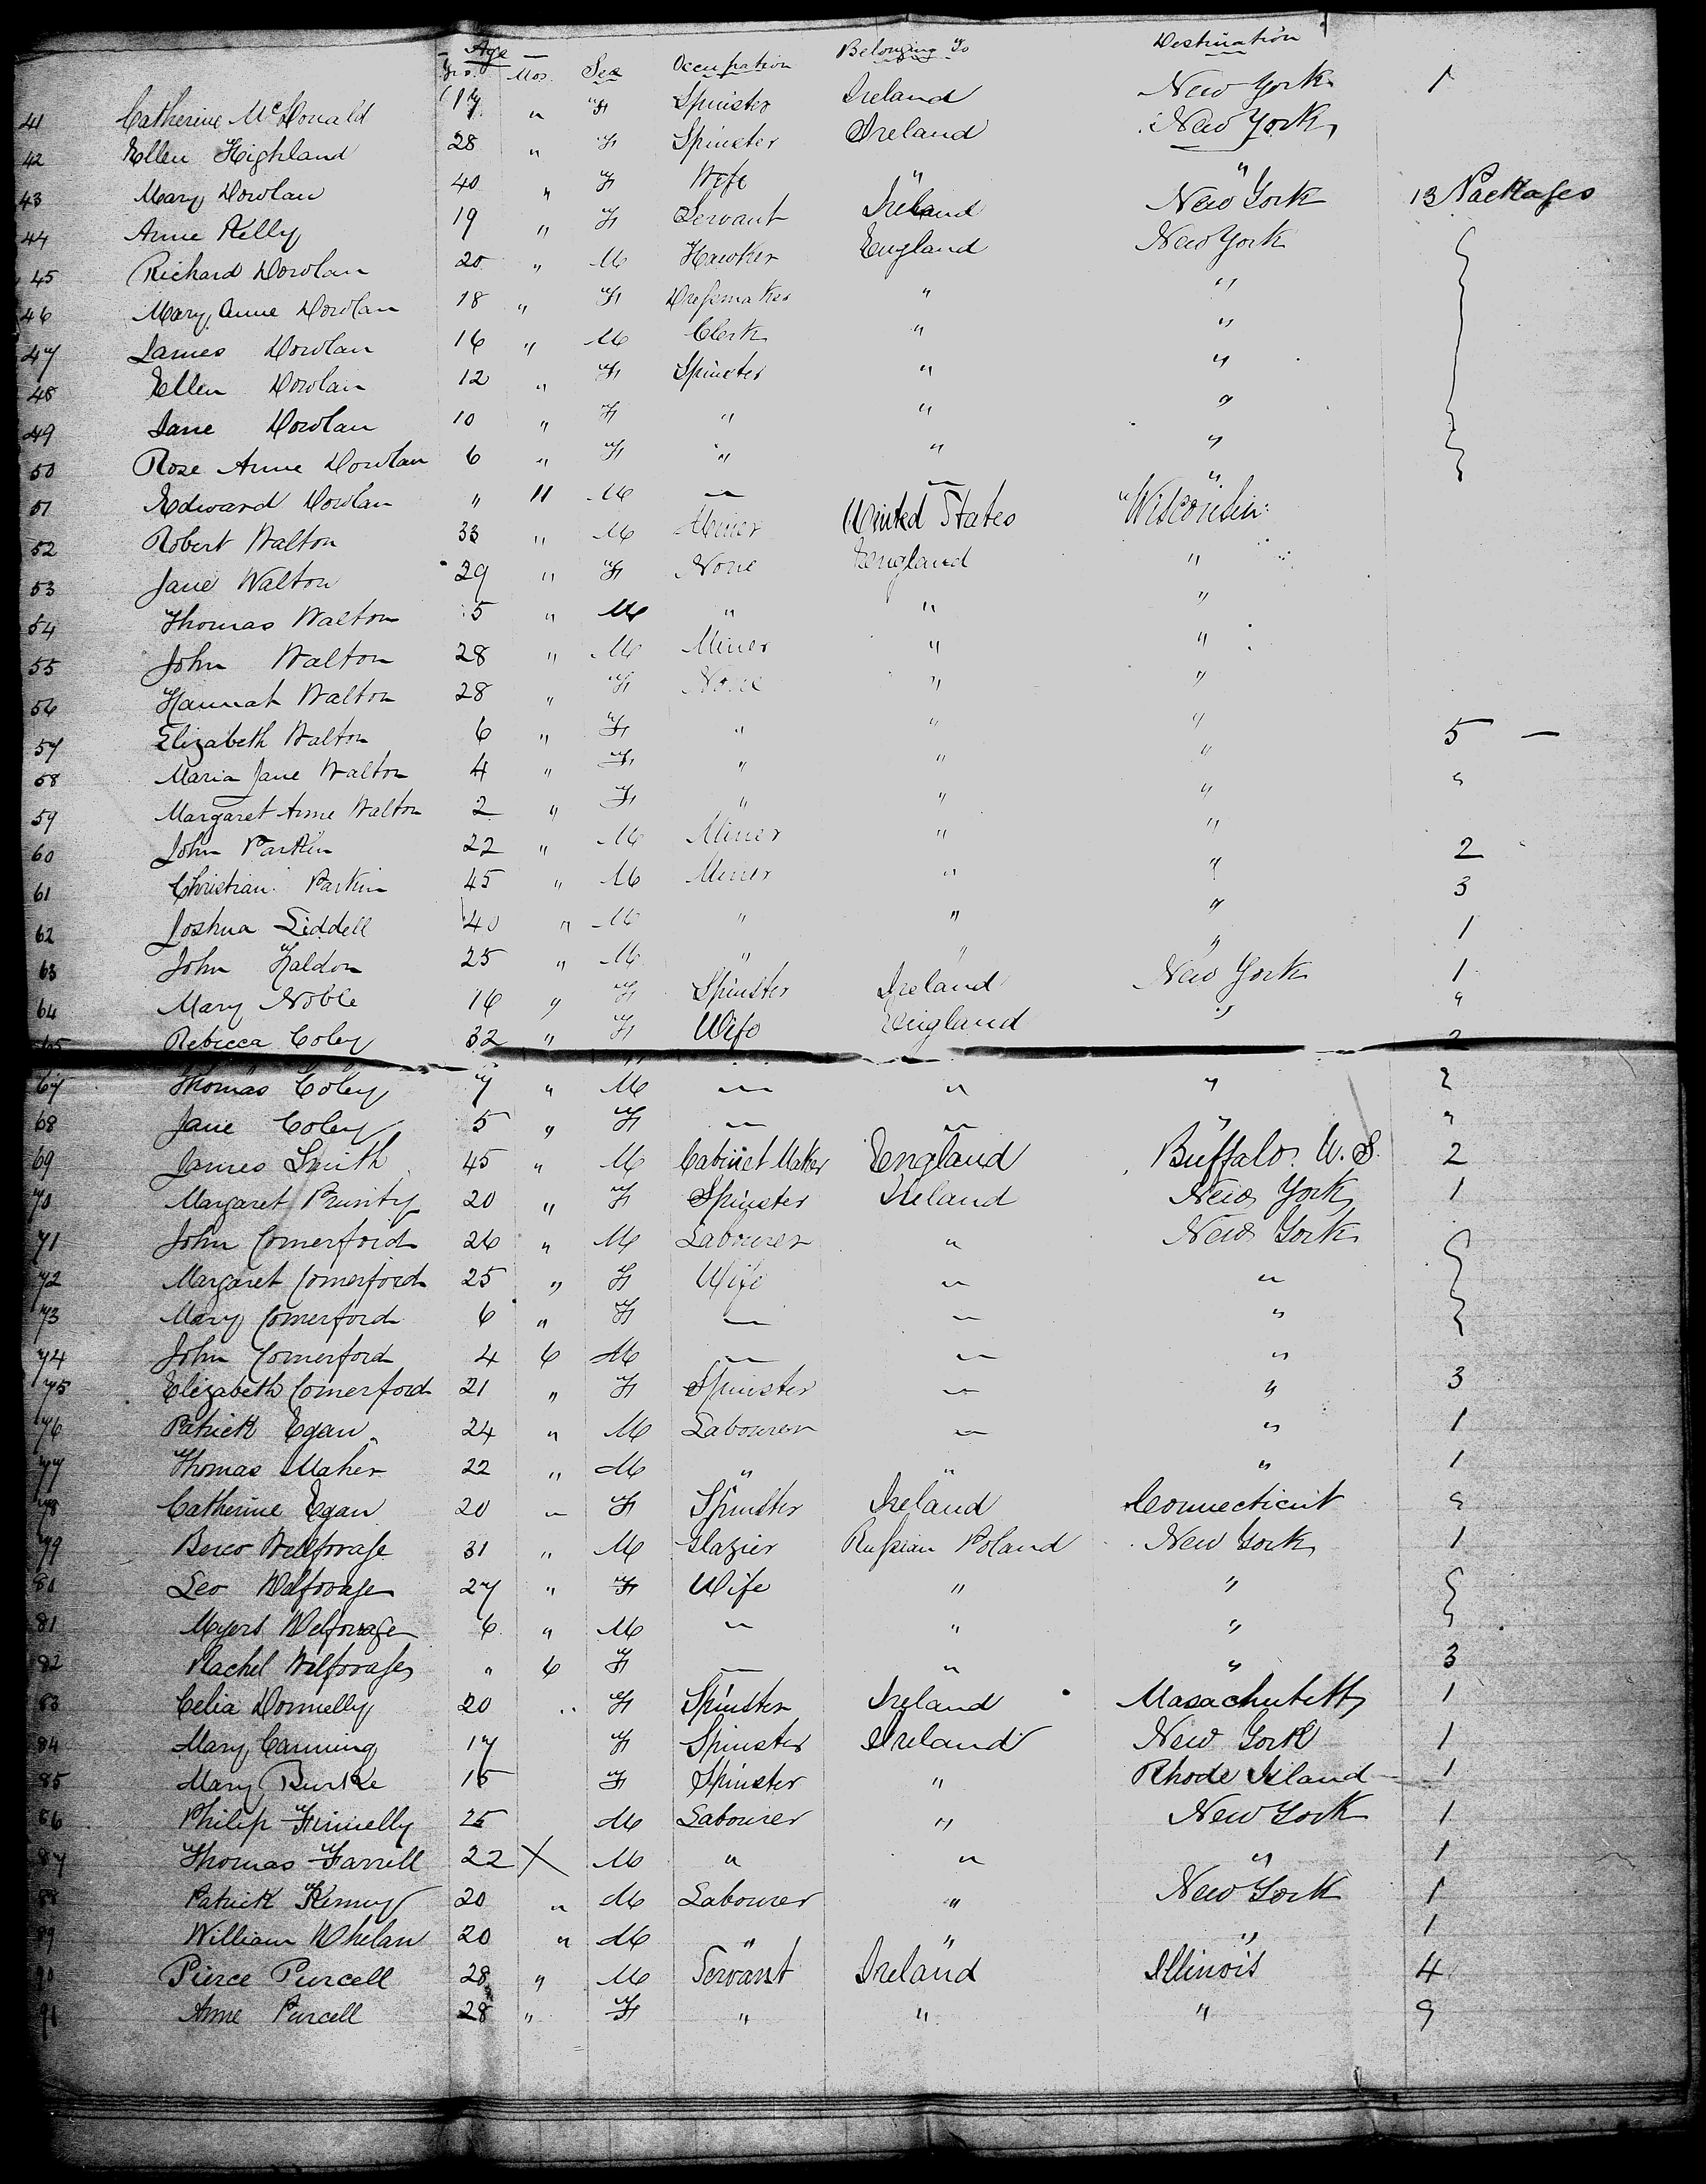 Age
Yrs. Mos. Sex Occupation Belonging To Destination
41 Catherine McDonald 17 " F Spinster Ireland New York 1
42 Ellen Highland 28 " F Spinster Ireland New York
43 Mary Dowlan 40 " F Wife " "
44 Anne Kelly 19 " F Servant Ireland New York 13 Packages
45 Richard Dowlan 20 " M Hawker England New York
46 Mary Anne Dowlan 18 " F Dressmaker " "
47 James Dowlan 16 " M Clerk " "
48 Ellen Dowlan 12 " F Spinster " "
49 Jane Dowlan 10 " F " " "
50 Rose Anne Dowlan 6 " F " " "
51 Edward Dowlan " 11 M — — "
52 Robert Walton 33 " M Miner United States Wisconsin
53 Jane Walton 29 " F None England "
54 Thomas Walton 5 " M " " "
55 John Walton 28 " M Miner " "
56 Hannah Walton 28 " F None " "
57 Elizabeth Walton 6 " F " " " 5 —
58 Maria Jane Walton 4 " F " " " "
59 Margaret Anne Walton 2 " F " " "
60 John Parkin 22 " M Miner " " 2
61 Christian Parkin 45 " M Miner " " 3
62 Joshua Liddell 40 " M " " " 1
63 John Haldon 25 " M " " " 1
64 Mary Noble 16 " F Spinster Ireland New York "
65 Rebecca Coley 32 " F Wife England " 2
67 Thomas Coley 7 " M — " " 2
68 Jane Coley 5 " F — " " "
69 James Smith 45 " M Cabinet Maker England Buffalo U.S. 2
70 Margaret Prunty 20 " F Spinster Ireland New York 1
71 John Comerford 26 " M Labourer " New York
72 Margaret Comerford 25 " F Wife — "
73 Mary Comerford 6 " F — — "
74 John Comerford 4 6 M — — "
75 Elizabeth Comerford 21 " F Spinster — " 3
76 Patrick Egan 24 " M Labourer — " 1
77 Thomas Maher 22 " M " " " 1
78 Catherine Egan 20 " F Spinster Ireland Connecticut "
79 31 " M Glazier Russian Poland New York 1
80 Leo 27 " F Wife " "
81 Myers 6 " M — " "
82 Rachel " 6 F — " " 3
83 Celia Donnelly 20 " F Spinster Ireland Masachusetts 1
84 Mary Canning 17 F Spinster Ireland New York 1
85 Mary Burke 15 F Spinster " Rhode Island 1
86 Philip Finnelly 25 M Labourer " New York 1
87 Thomas Farrell 22 X M " " " 1
88 Patrick 20 " M Labourer " New York 1
89 William Whelan 20 " M " " " 1
90 Pierce Purcell 28 " M Servant Ireland Illinois 4
91 Anne Purcell 28 " F " " " "